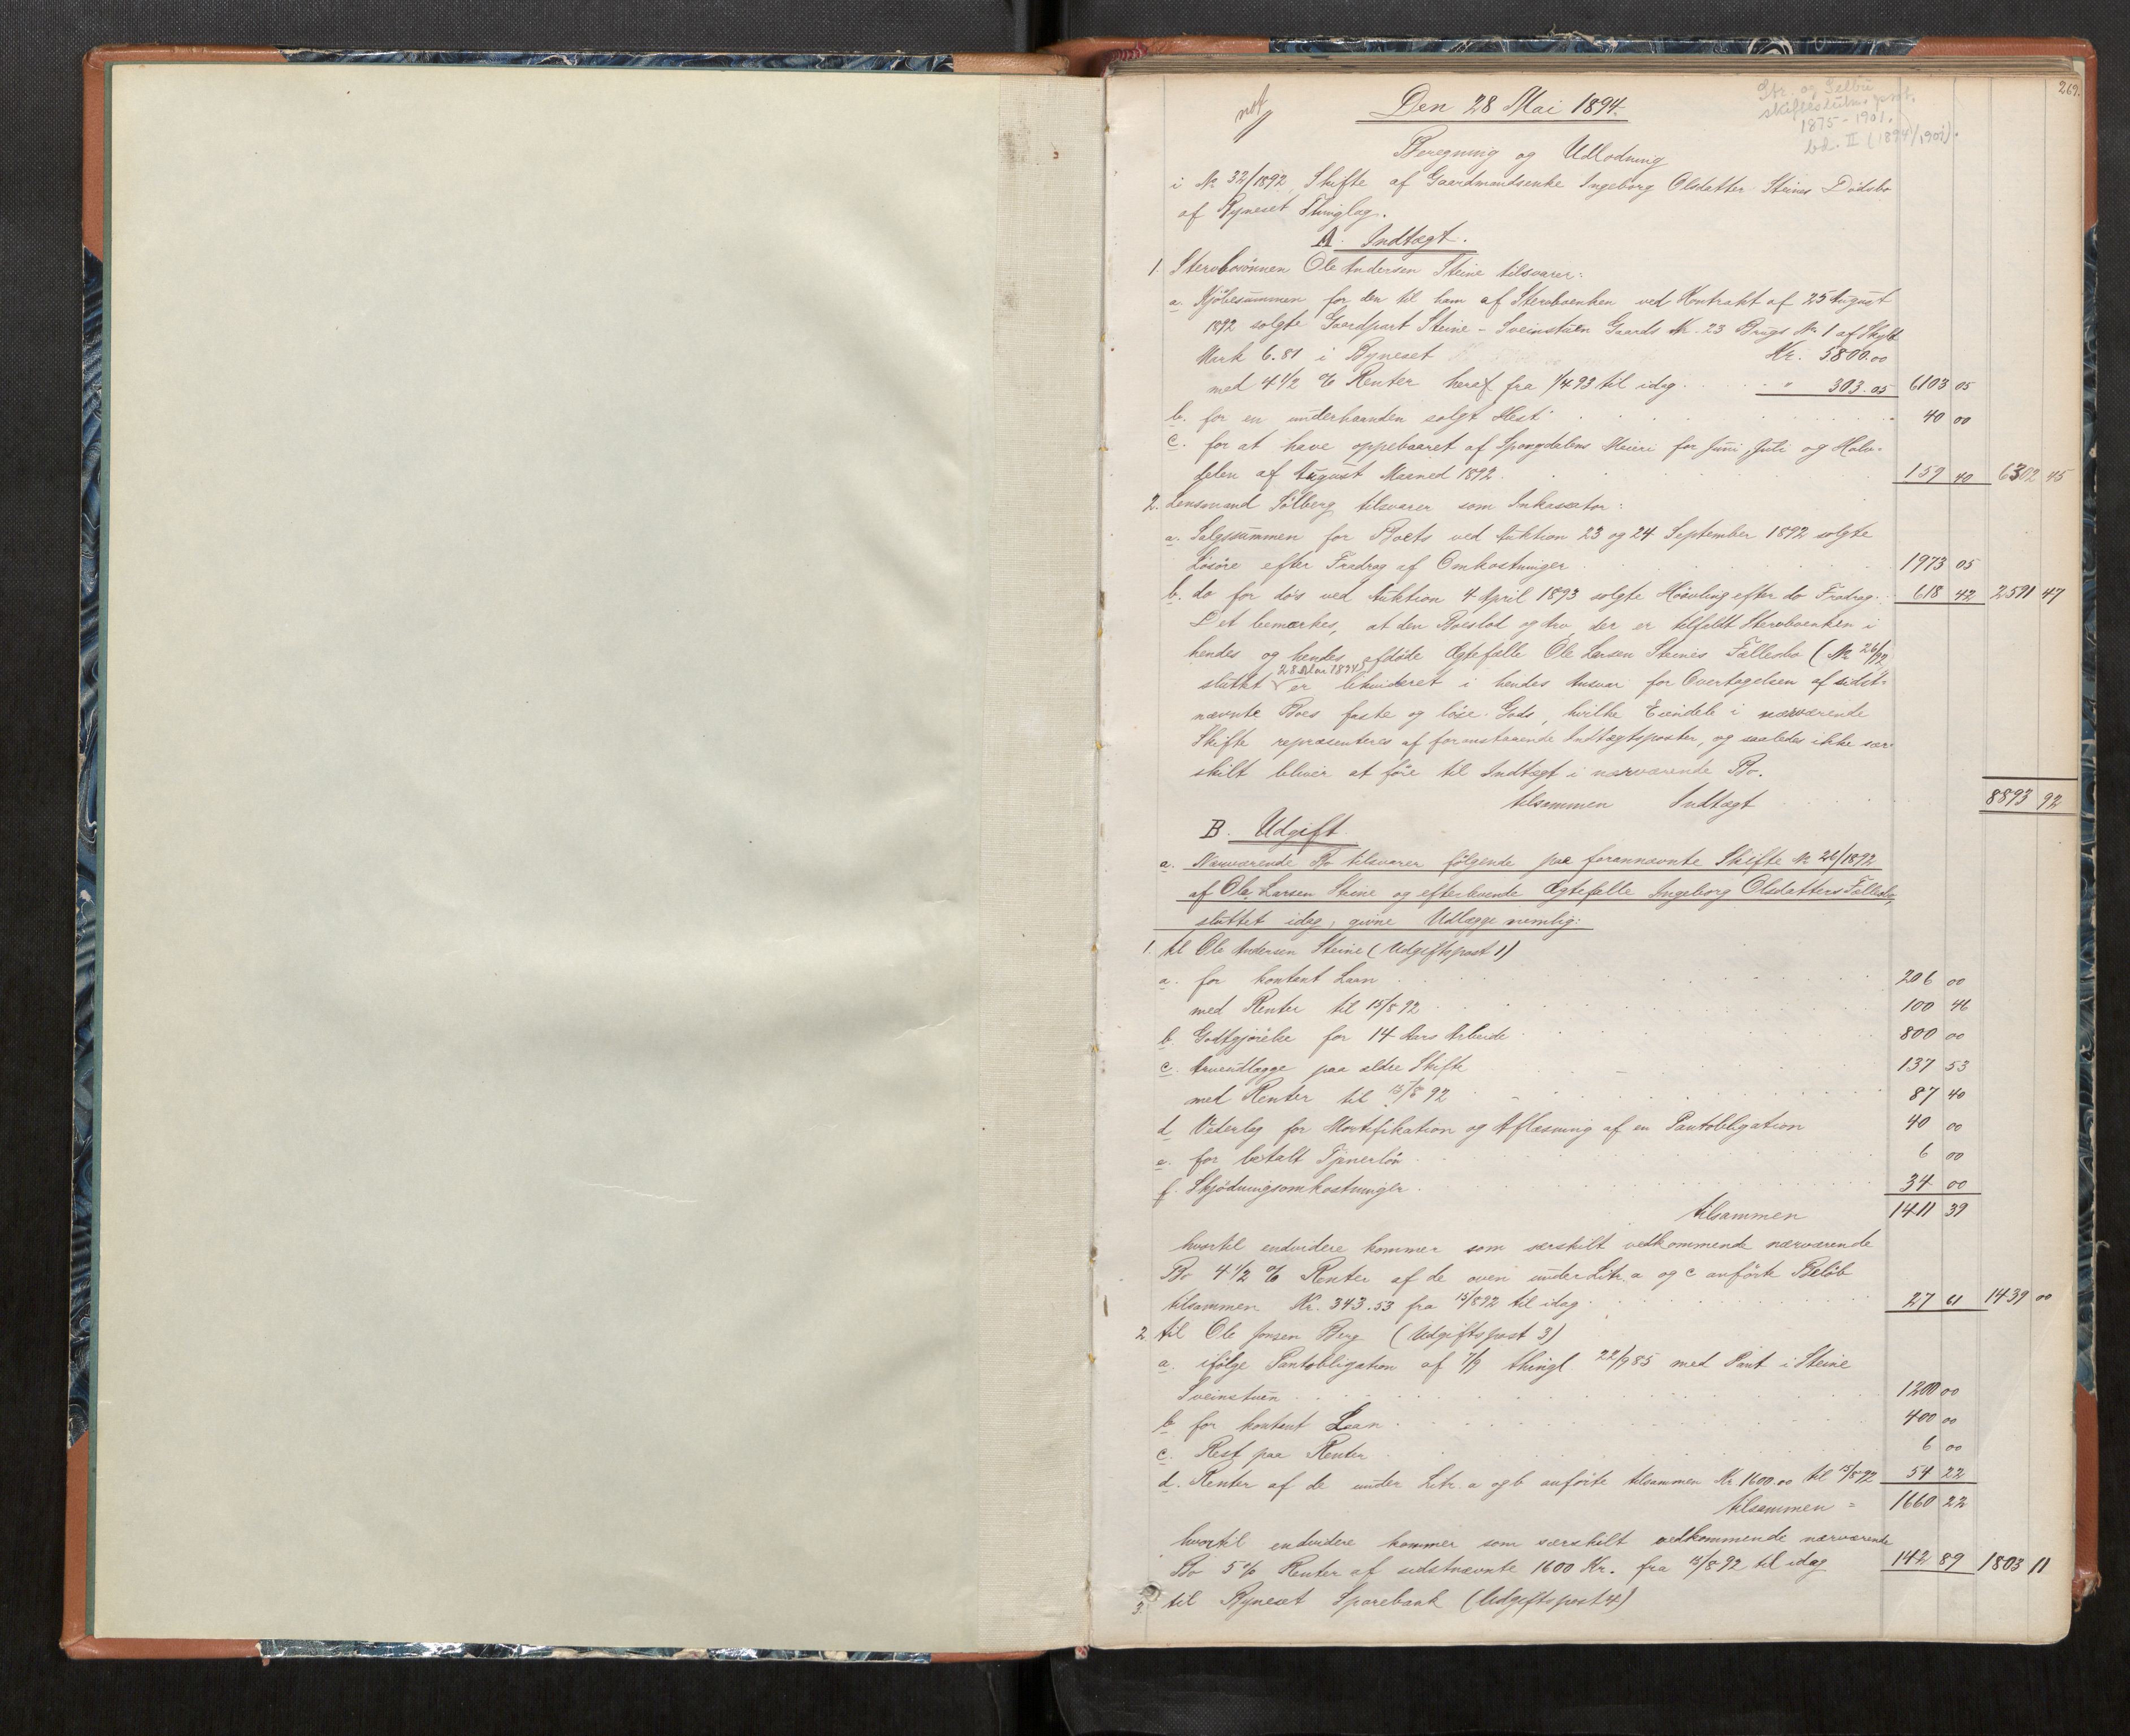 269.
Str. og Selbu
skifteslutn. prot.
1875-1901.
bd. II (1894/1901).
Den 28 Mai 1894.
Beregning og Udlodning
i No 32/1892, Skifte af Gaardmandsenke Ingeborg Olsdatter Steines Dødsbo
af Bynesset Thinglag.
A. Indtægt.
1. Stervbosønnen Ole Andersen Steine tilsvarer:
a. Kjøbesummen for den til ham af Stervboenken ved Kontrakt af 25 August
1892 solgte Gaardpart Steine-Sveinstuen Gaards Nr. 23 Brugs Nr 1 af Skyld
Mark 6.81 i Byneset Kr. 5800.00
med 4 1/2 % Renter heraf fra 1/4 93 til idag. " 303.05 6103 05
b. for en underhaanden solgt Hest 40 00
c. for at have oppebaaret af Spongdalens Meieri for Juni, Juli og Halv-
delen af August Maaned 1892. 159 40 6302 45
2. Lensmand Solberg tilsvarer som Inkassator:
a. Salgssummen for Boets ved Auktion 23 og 24 September 1892 solgte
Løsøre efter Fradrag af Omkostninger 1973 05
b. do for do's ved Auktion 4 April 1893 solgte Høavling efter do Fradrag. 618 42 2591 47
Det bemærkes, at den Boeslod og Arv, der er tilfaldt Stervboenken i
hendes og hendes afdøde Ægtefælle Ole Larsen Steines Fællesbo (No 26/92
sluttet 28 Mai 1894) er likvideret i hendes Ansvar for Overtagelsen af sidst-
nævnte Boes faste og løse Gods, hvilke Eiendele i nærværende
Skifte repræsenteres af foranstaaende Indtægtsposter, og saaledes ikke sær-
skilt bliver at føre til Indtægt i nærværende Bo.
tilsammen Indtægt 8893 92
B. Udgift.
a. Nærværende Bo tilsvarer følgende paa forannævnte Skifte No 26/1892
af Ole Larsen Steine og efterlevende Ægtefælle Ingeborg Olsdatters Fællesbo,
sluttet idag, givne Udlægge nemlig:
1. til Ole Andersen Steine (Udgiftspost 1)
a. for kontant Laan 206 00
med Renter til 15/8 92 100 46
b. Godtgjørelse for 14 Aars Arbeide 800 00
c. Arveudlægge paa ældre Skifte 137 53
med Renter til 15/8 92 87 40
d. Vederlag for Mortifikation og Aflæsning af en Pantobligation 40 00
e. for betalt Tjenerløn 6 00
f. Skjødningsomkostninger 34 00
tilsammen 1411 39
hvortil endvidere kommer som særskilt vedkommende nærværende
Bo 4 1/2 % Renter af de oven under Litr. a og c anførte Beløb
tilsammen Kr. 343.53 fra 15/8 92 til idag. 27 61 1439 00
2. til Ole Jonsen Berg (Udgiftspost 3)
a. ifølge Pantobligation af 7/9 thingl. 22/9 85 med Pant i Steine
Sveinstuen 1200 00
b. for kontant Laan 400 00
c. Rest paa Renter 6 00
d. Renter af de under Litr. a og b anførte tilsammen Kr. 1600.00 til 15/8 92 54 22
tilsammen = 1660 22
hvortil endvidere kommer som særskilt vedkommende nærværende
Bo 5 % Renter af sidstnævnte 1600 Kr. fra 15/8 92 til idag 142 89 1803 11
3. til Byneset Sparebank (Udgiftspost 4)